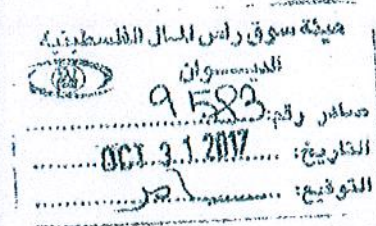 هيئة سوق رأس المال الفلسطينية
الديـــــوان
صادر رقم: 9583
التاريخ: OCT 31.2017
التوقيع: